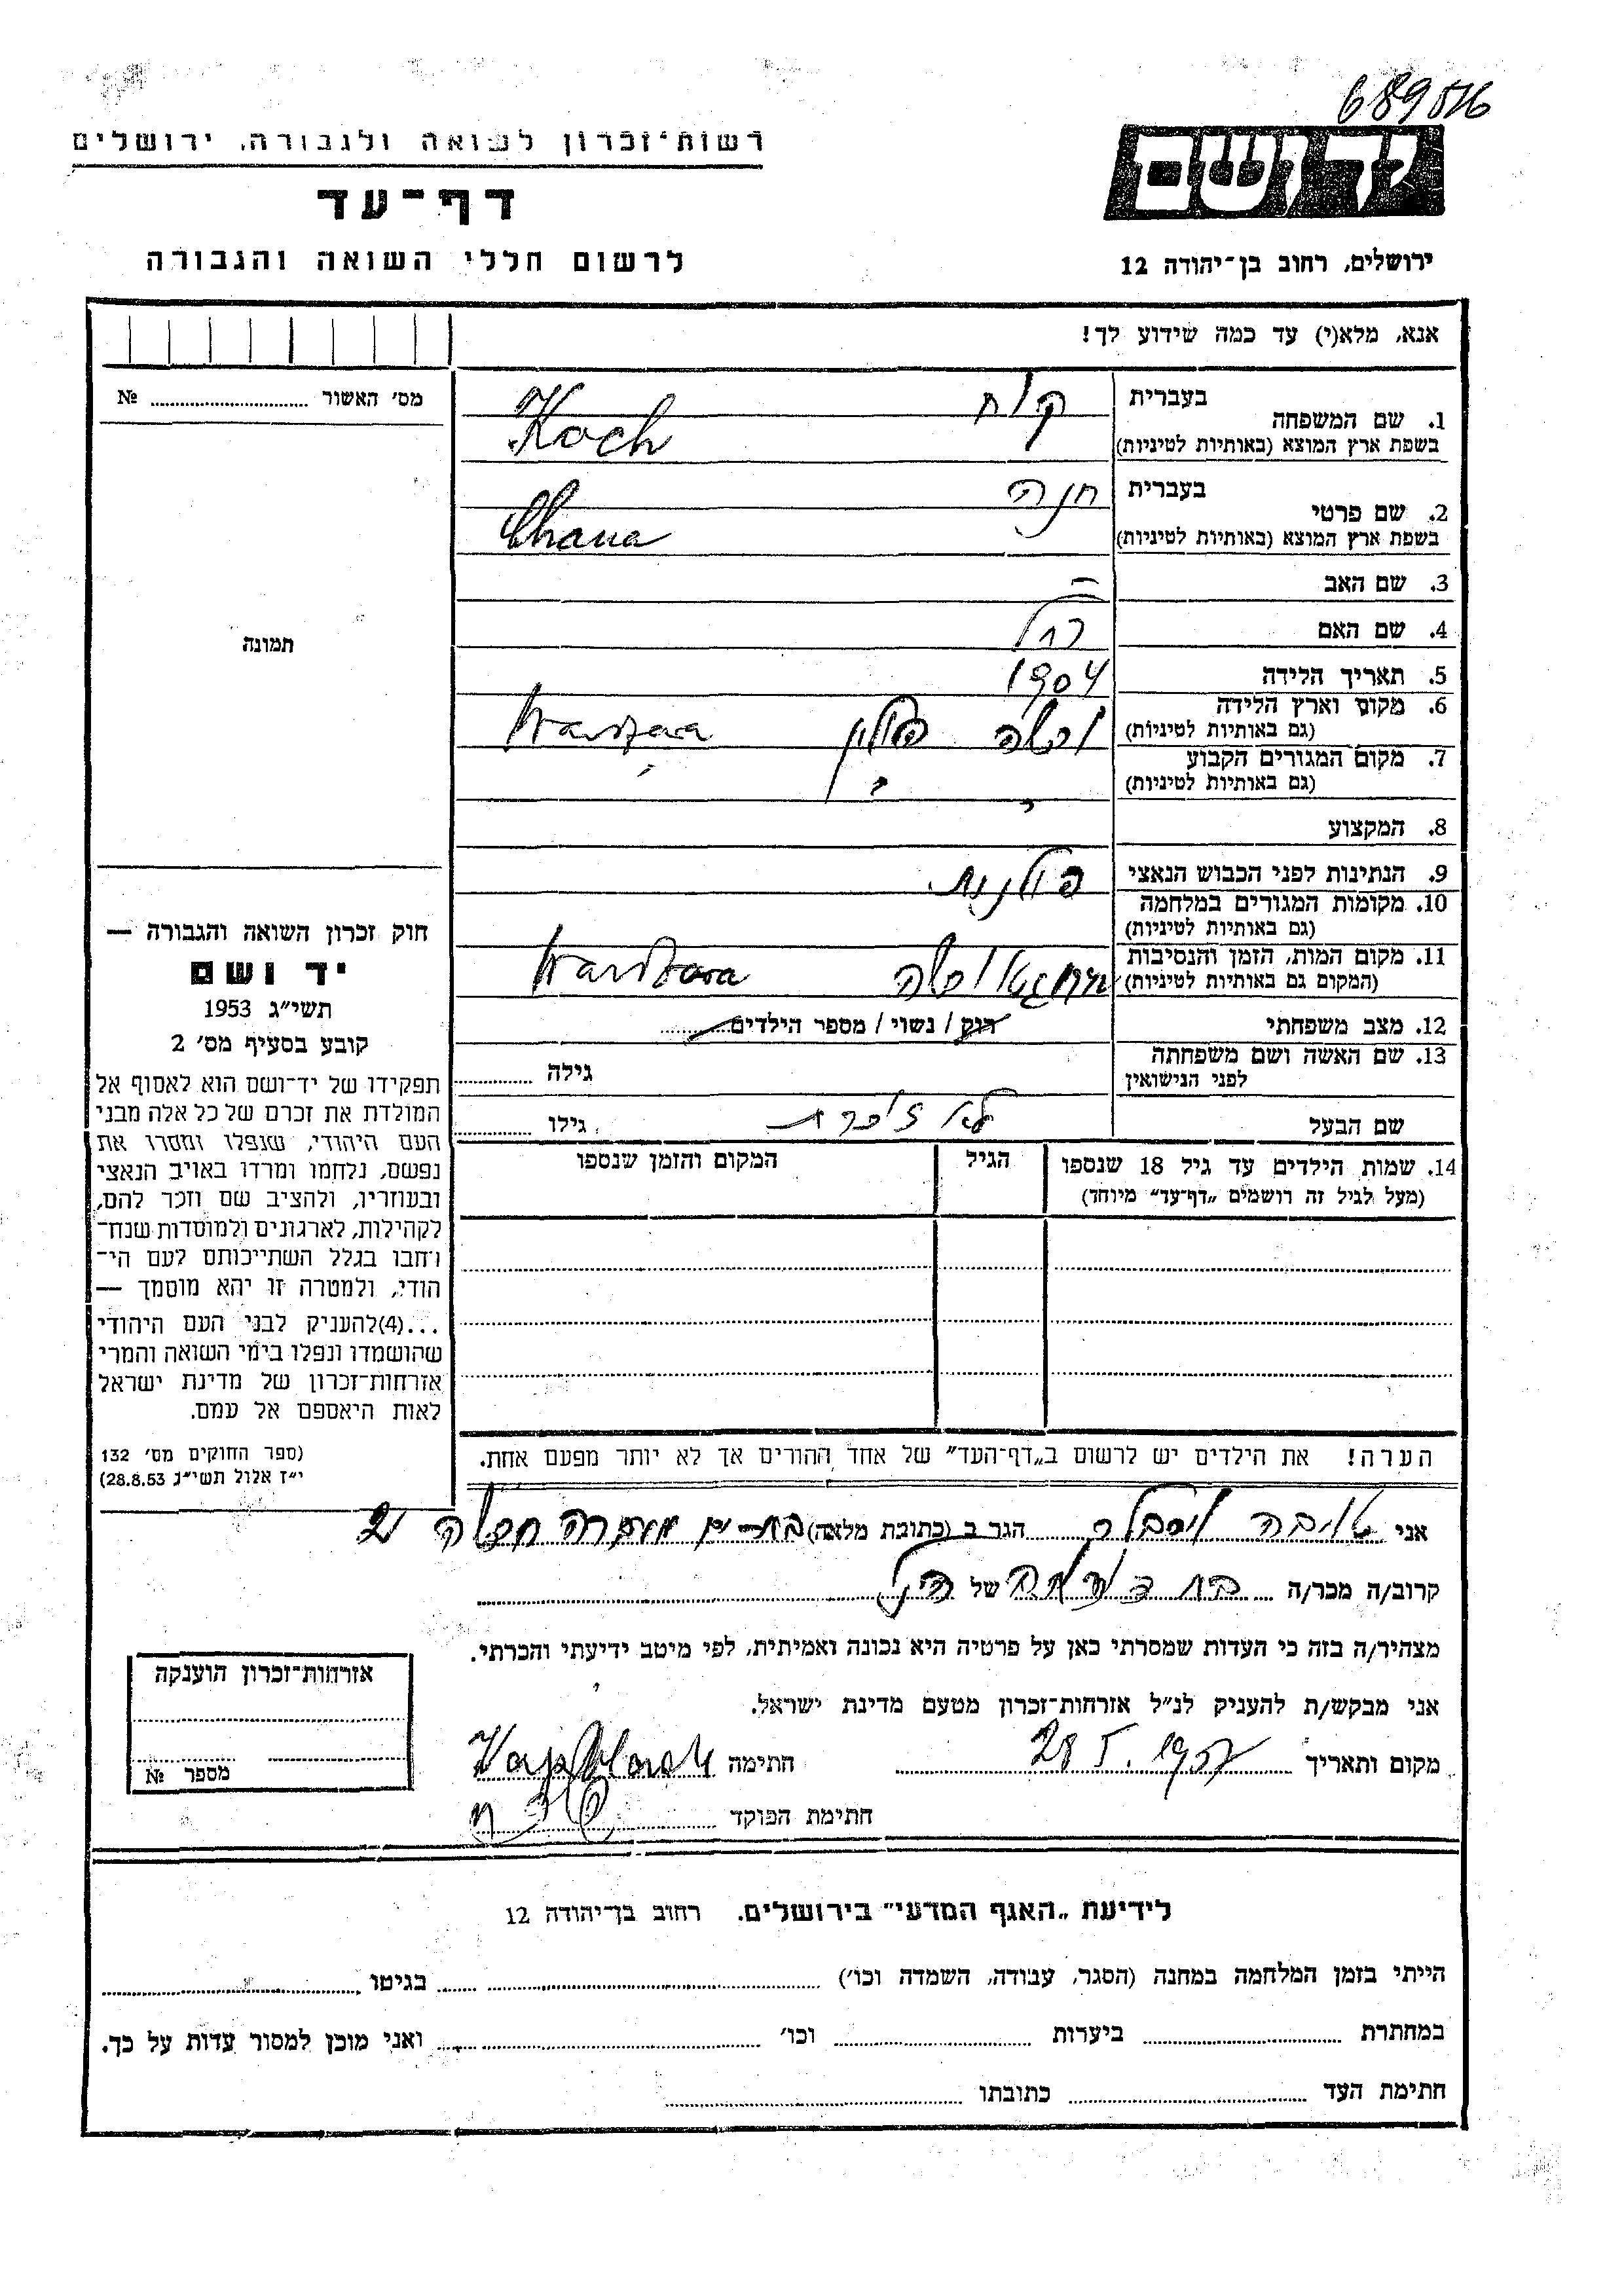 689516
רשות־זכרון לשואה ולגבורה, ירושלים
יד ושם
דף־עד
לרשום חללי השואה והגבורה
ירושלים, רחוב בן־יהודה 12
אנא, מלא(י) עד כמה שידוע לך!
מס׳ האשור № 
1. שם המשפחה בעברית קוח
בשפת ארץ המוצא (באותיות לטיניות) Koch
2. שם פרטי בעברית חנה
בשפת ארץ המוצא (באותיות לטיניות) Chana
3. שם האב –
4. שם האם רחל
תמונה
5. תאריך הלידה 1904
6. מקום וארץ הלידה (גם באותיות לטיניות) ורשה פולין
7. מקום המגורים הקבוע (גם באותיות לטיניות)
8. המקצוע
9. הנתינות לפני הכבוש הנאצי פולנית
10. מקומות המגורים במלחמה (גם באותיות לטיניות)
11. מקום המות, הזמן והנסיבות (המקום גם באותיות לטיניות) ורשה
12. מצב משפחתי רוק / נשוי / מספר הילדים
13. שם האשה ושם משפחתה לפני הנישואין גילה
שם הבעל לא זוכרת גילו
14. שמות הילדים עד גיל 18 שנספו הגיל המקום והזמן שנספו
(מעל לגיל זה רושמים „דף־עד״ מיוחד)
חוק זכרון השואה והגבורה —
יד ושם
תשי״ג 1953
קובע בסעיף מס׳ 2
תפקידו של יד־ושם הוא לאסוף אל
המולדת את זכרם של כל אלה מבני
העם היהודי, שנפלו ומסרו את
נפשם, נלחמו ומרדו באויב הנאצי
ובעוזריו, ולהציב שם וזכר להם,
לקהילות, לארגונים ולמוסדות שנח־
רבו בגלל השתייכותם לעם הי־
הודי, ולמטרה זו יהא מוסמך —
...(4)להעניק לבני העם היהודי
שהושמדו ונפלו בימי השואה והמרי
אזרחות־זכרון של מדינת ישראל
לאות היאספם אל עמם.
(ספר החוקים מס׳ 132
י״ז אלול תשי״ג 28.8.53)
הערה! את הילדים יש לרשום ב„דף־העד״ של אחד ההורים אך לא יותר מפעם אחת.
אני טויבה הגר ב (כתובת מלאה) בת-ים
קרוב/ה מכר/ה בת של הנ״ל
מצהיר/ה בזה כי העדות שמסרתי כאן על פרטיה היא נכונה ואמיתית, לפי מיטב ידיעתי והכרתי.
אני מבקש/ת להעניק לנ״ל אזרחות־זכרון מטעם מדינת ישראל.
מקום ותאריך 28 5. 1957 חתימה
חתימת הפוקד
אזרחות־זכרון הוענקה
מספר №
לידיעת „האגף המדעי״ בירושלים. רחוב בן־יהודה 12
הייתי בזמן המלחמה במחנה (הסגר, עבודה, השמדה וכו׳) בגיטו
במחתרת ביערות וכו׳ ואני מוכן למסור עדות על כך.
חתימת העד כתובתו